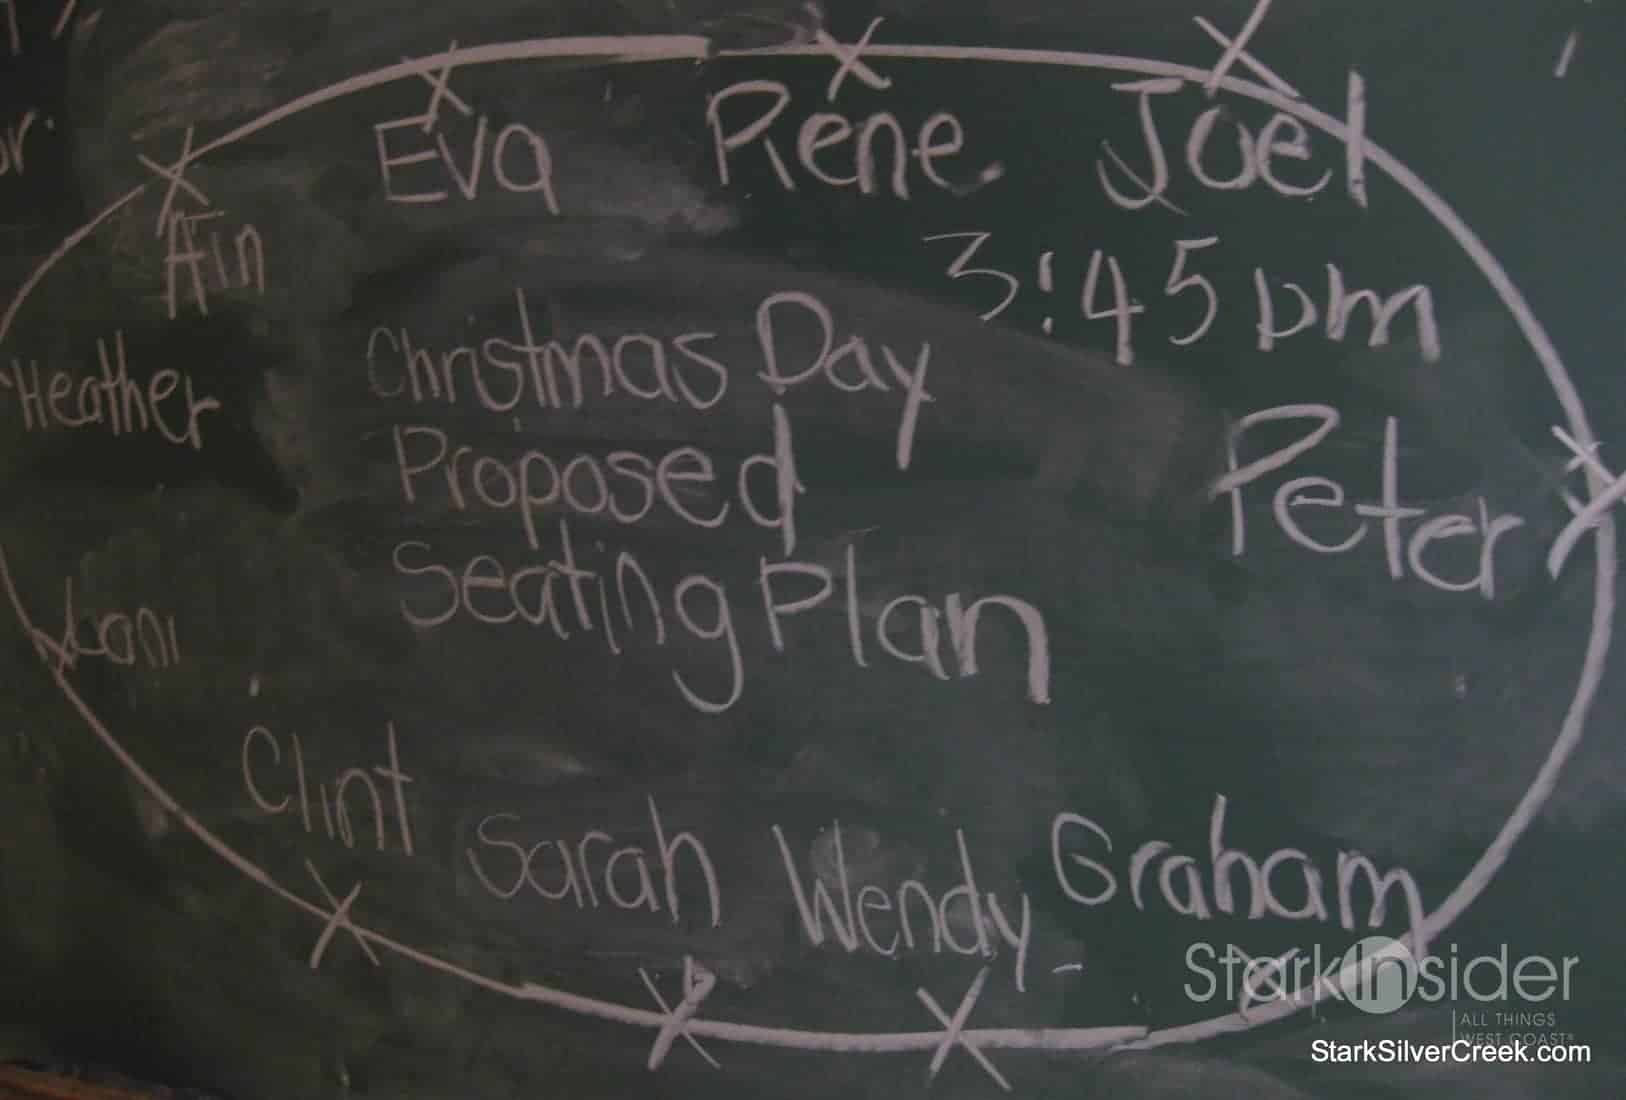 Eva Rene Joel
Ain
3:45pm
Heather
Christmas Day
Proposed
Seating Plan
Peter
Loani
Clint
Sarah
Wendy
Graham
StarkInsider
ALL THINGS
WEST COAST
StarkSilverCreek.com